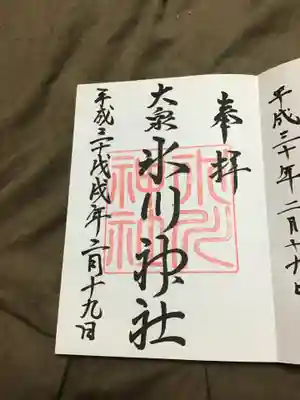 平成三十年二月十九日
奉拝
大泉
氷川神社
平成三十戊戌年二月十九日
氷川
神社